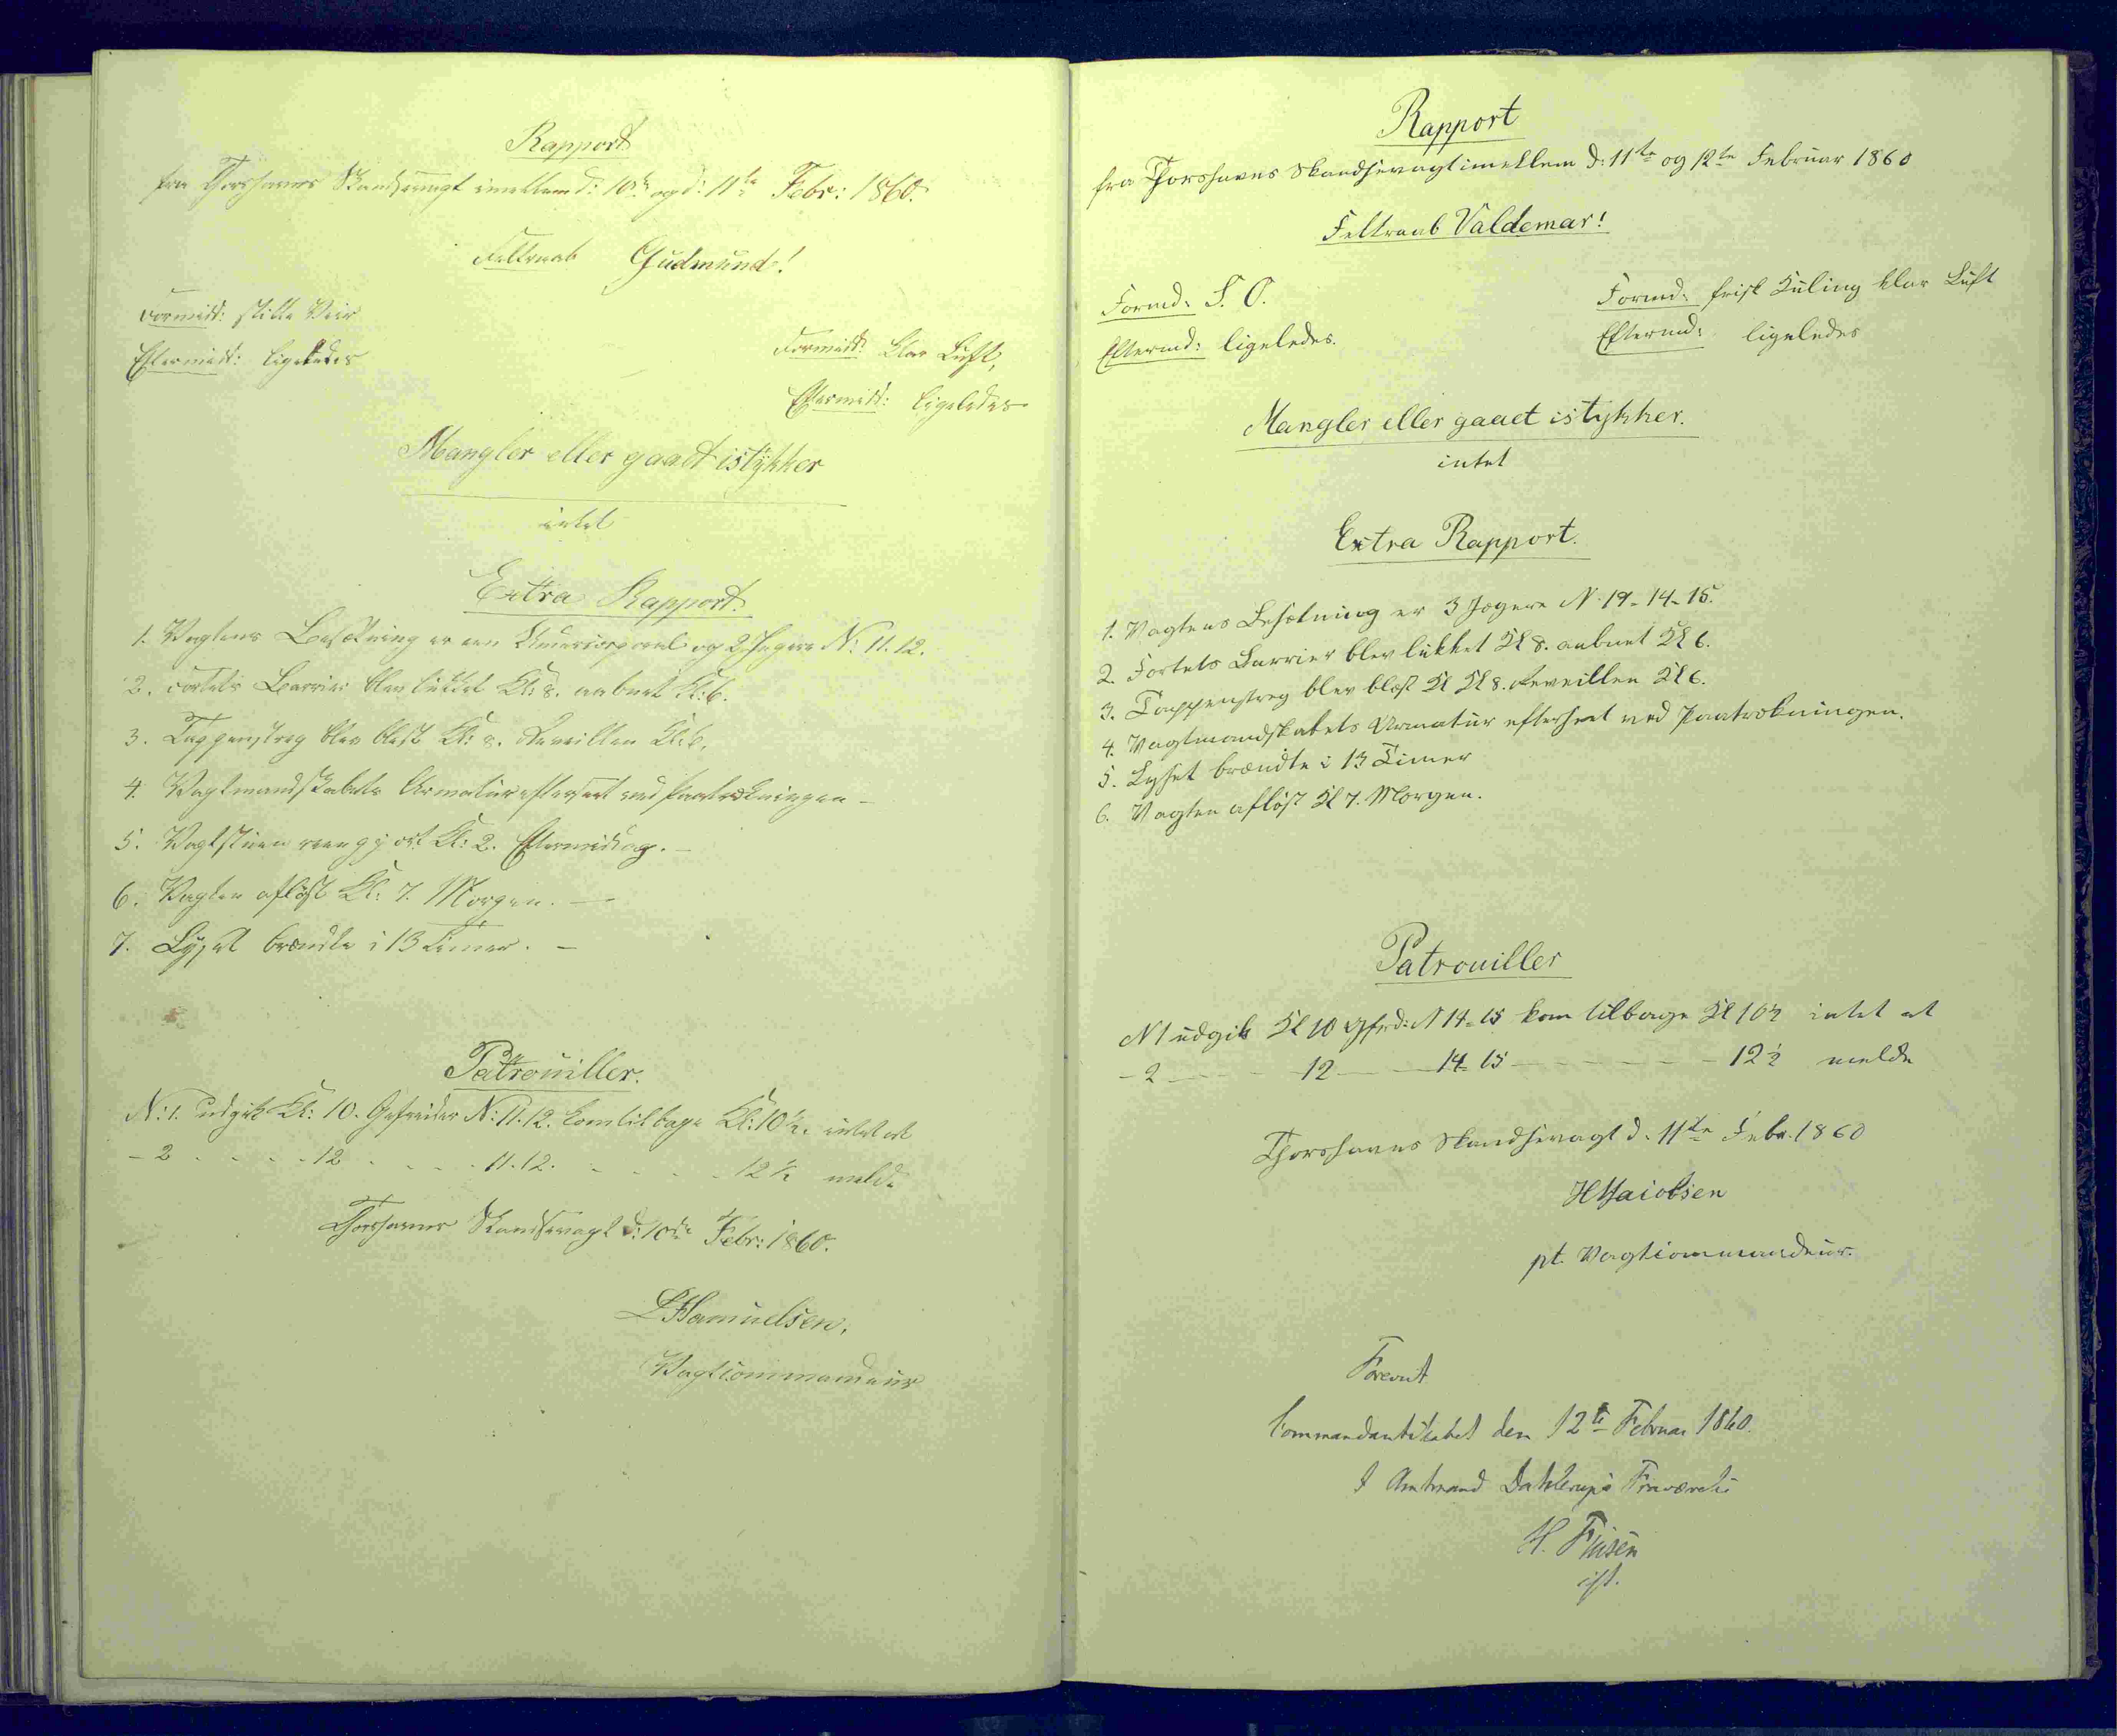 Rapport
fra Thorshavns Skandsevagt imellem d: 10de og d: 11te Febr: 1860.
Feltraab Gudmund!
Formidd: stille Veir
Eftermidd: ligeledes
Formidd: klar Luft,
Eftermidd: ligeledes
Mangler eller gaaet istykker
intet
Extra Rapport.
1. Vagtens Besætning er een Underkorporal og 2 Jægere N: 11. 12.
2. Fortets Barrier blev lukket Kl: 8. aabnet Kl: 6.
3. Tappenstreg blev blæst Kl: 8. Reveillen Kl: 6.
4. Vagtmandskabets Armatur efterseet ved Paatrækningen –
5. Vagtstuen reengjort Kl: 2. Eftermiddag. –
6. Vagten afløst Kl: 7. Morgen. –
7. Lyset brændte i 13 Timer. –
Patrouiller.
N: 1. udgik Kl: 10. Gefreider N: 11. 12. kom tilbage Kl: 10½. intet at
- 2 - - - - 12 - - - - 11. 12. - - - - - 12½ melde
Thorshavns Skandsevagt d: 10de Febr: 1860.
Samuelsen.
Vagtcommandeur
Rapport
fra Thorshavns Skandsevagt imellem d: 11te og 12te Februar 1860
Feltraab Valdemar!
Formd: S. O.
Eftermd: ligeledes.
Formd: frisk Kuling klar Luft
Eftermd: ligeledes
Mangler eller gaaet istykker.
intet
Extra Rapport.
1. Vagtens Besætning er 3 Jægere N. 19- 14- 15.
2. Fortets Barrier blev lukket Kl 8. aabnet Kl 6.
3. Tappenstreg blev blæst Kl Kl 8. Reveillen Kl 6.
4. Vagtmandskabets Armatur efterseet ved Paatrækningen.
5. Lyset brændte i 13 Timer
6. Vagten afløst Kl 7. Morgen.
Patrouiller
N 1 udgik Kl 10 Gfrd: N 14- 15 kom tilbage Kl 10½ intet at
- 2 - - - 12 - - 14- 15 - - - - - 12½ melde
Thorshavns Skandsevagt d. 11te Febr. 1860
Jacobsen
pt. Vagtcommandeur.
Foreviist
Commandantskabet den 12te Februar 1860.
I Amtmand Dahlerups Fraværelse
H. Finsen
cst.